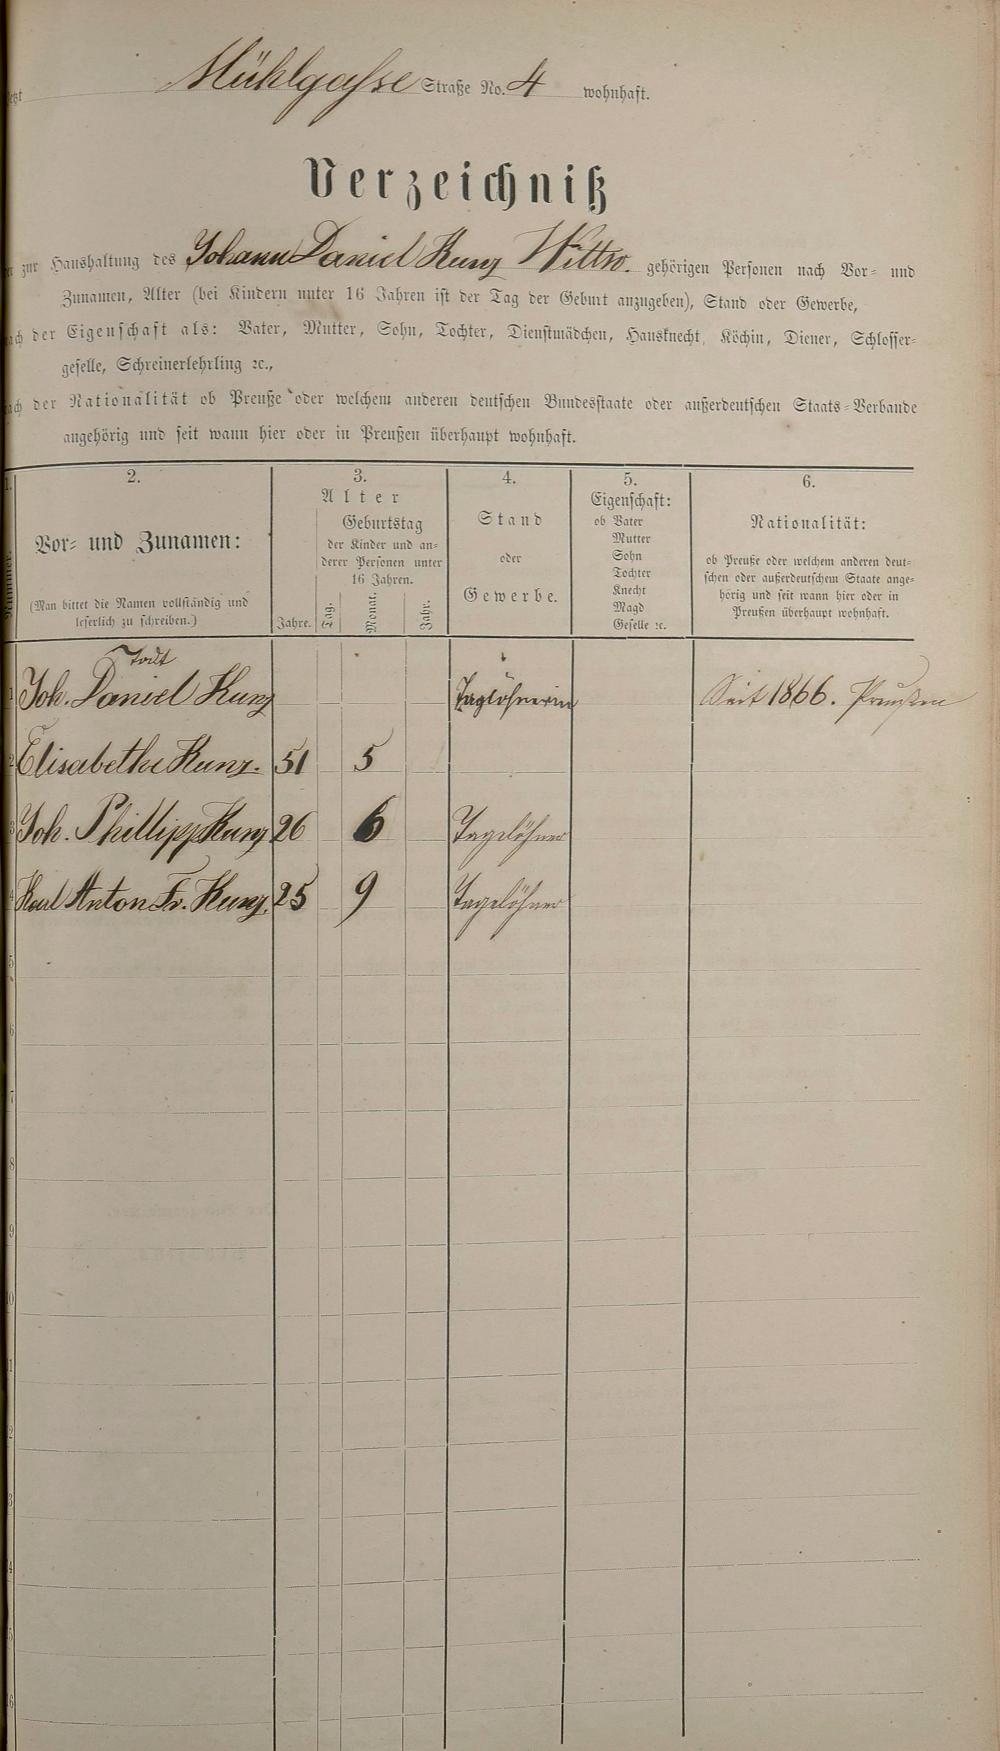 Mühlgasse Straße No. 4 wohnhaft.
Verzeichniß
zur Haushaltung des Johann Daniel Kunz Wittw. gehörigen Personen nach Vor- und
Zunamen, Alter (bei Kindern unter 16 Jahren ist der Tag der Geburt anzugeben), Stand oder Gewerbe,
der Eigenschaft als: Vater, Mutter, Sohn, Tochter, Dienstmädchen, Hausknecht, Köchin, Diener, Schlosser-
geselle, Schreinerlehrling ꝛc.,
der Nationalität ob Preuße oder welchem anderen deutschen Bundesstaate oder außerdeutschen Staats-Verbande
angehörig und seit wann hier oder in Preußen überhaupt wohnhaft.
1. 2. 3. 4. 5. 6.
Nummer.
Vor- und Zunamen:
(Man bittet die Namen vollständig und
leserlich zu schreiben.)
Alter
Geburtstag
der Kinder und an-
derer Personen unter
16 Jahren.
Jahre. Tag. Monat. Jahr.
Stand
oder
Gewerbe.
Eigenschaft:
ob Vater
Mutter
Sohn
Tochter
Knecht
Magd
Geselle ꝛc.
Nationalität:
ob Preuße oder welchem anderen deut-
schen oder außerdeutschem Staate ange-
hörig und seit wann hier oder in
Preußen überhaupt wohnhaft.
Todt
1 Joh. Daniel Kunz Taglöhnerin Seit 1866. Preußen
2 Elisabethe Kunz. 51 5
3 Joh. Phillipp Kunz 26 6 Tagelöhner
4 Karl Anton Fr. Kunz. 25 9 Tagelöhner
5
6
7
8
9
10